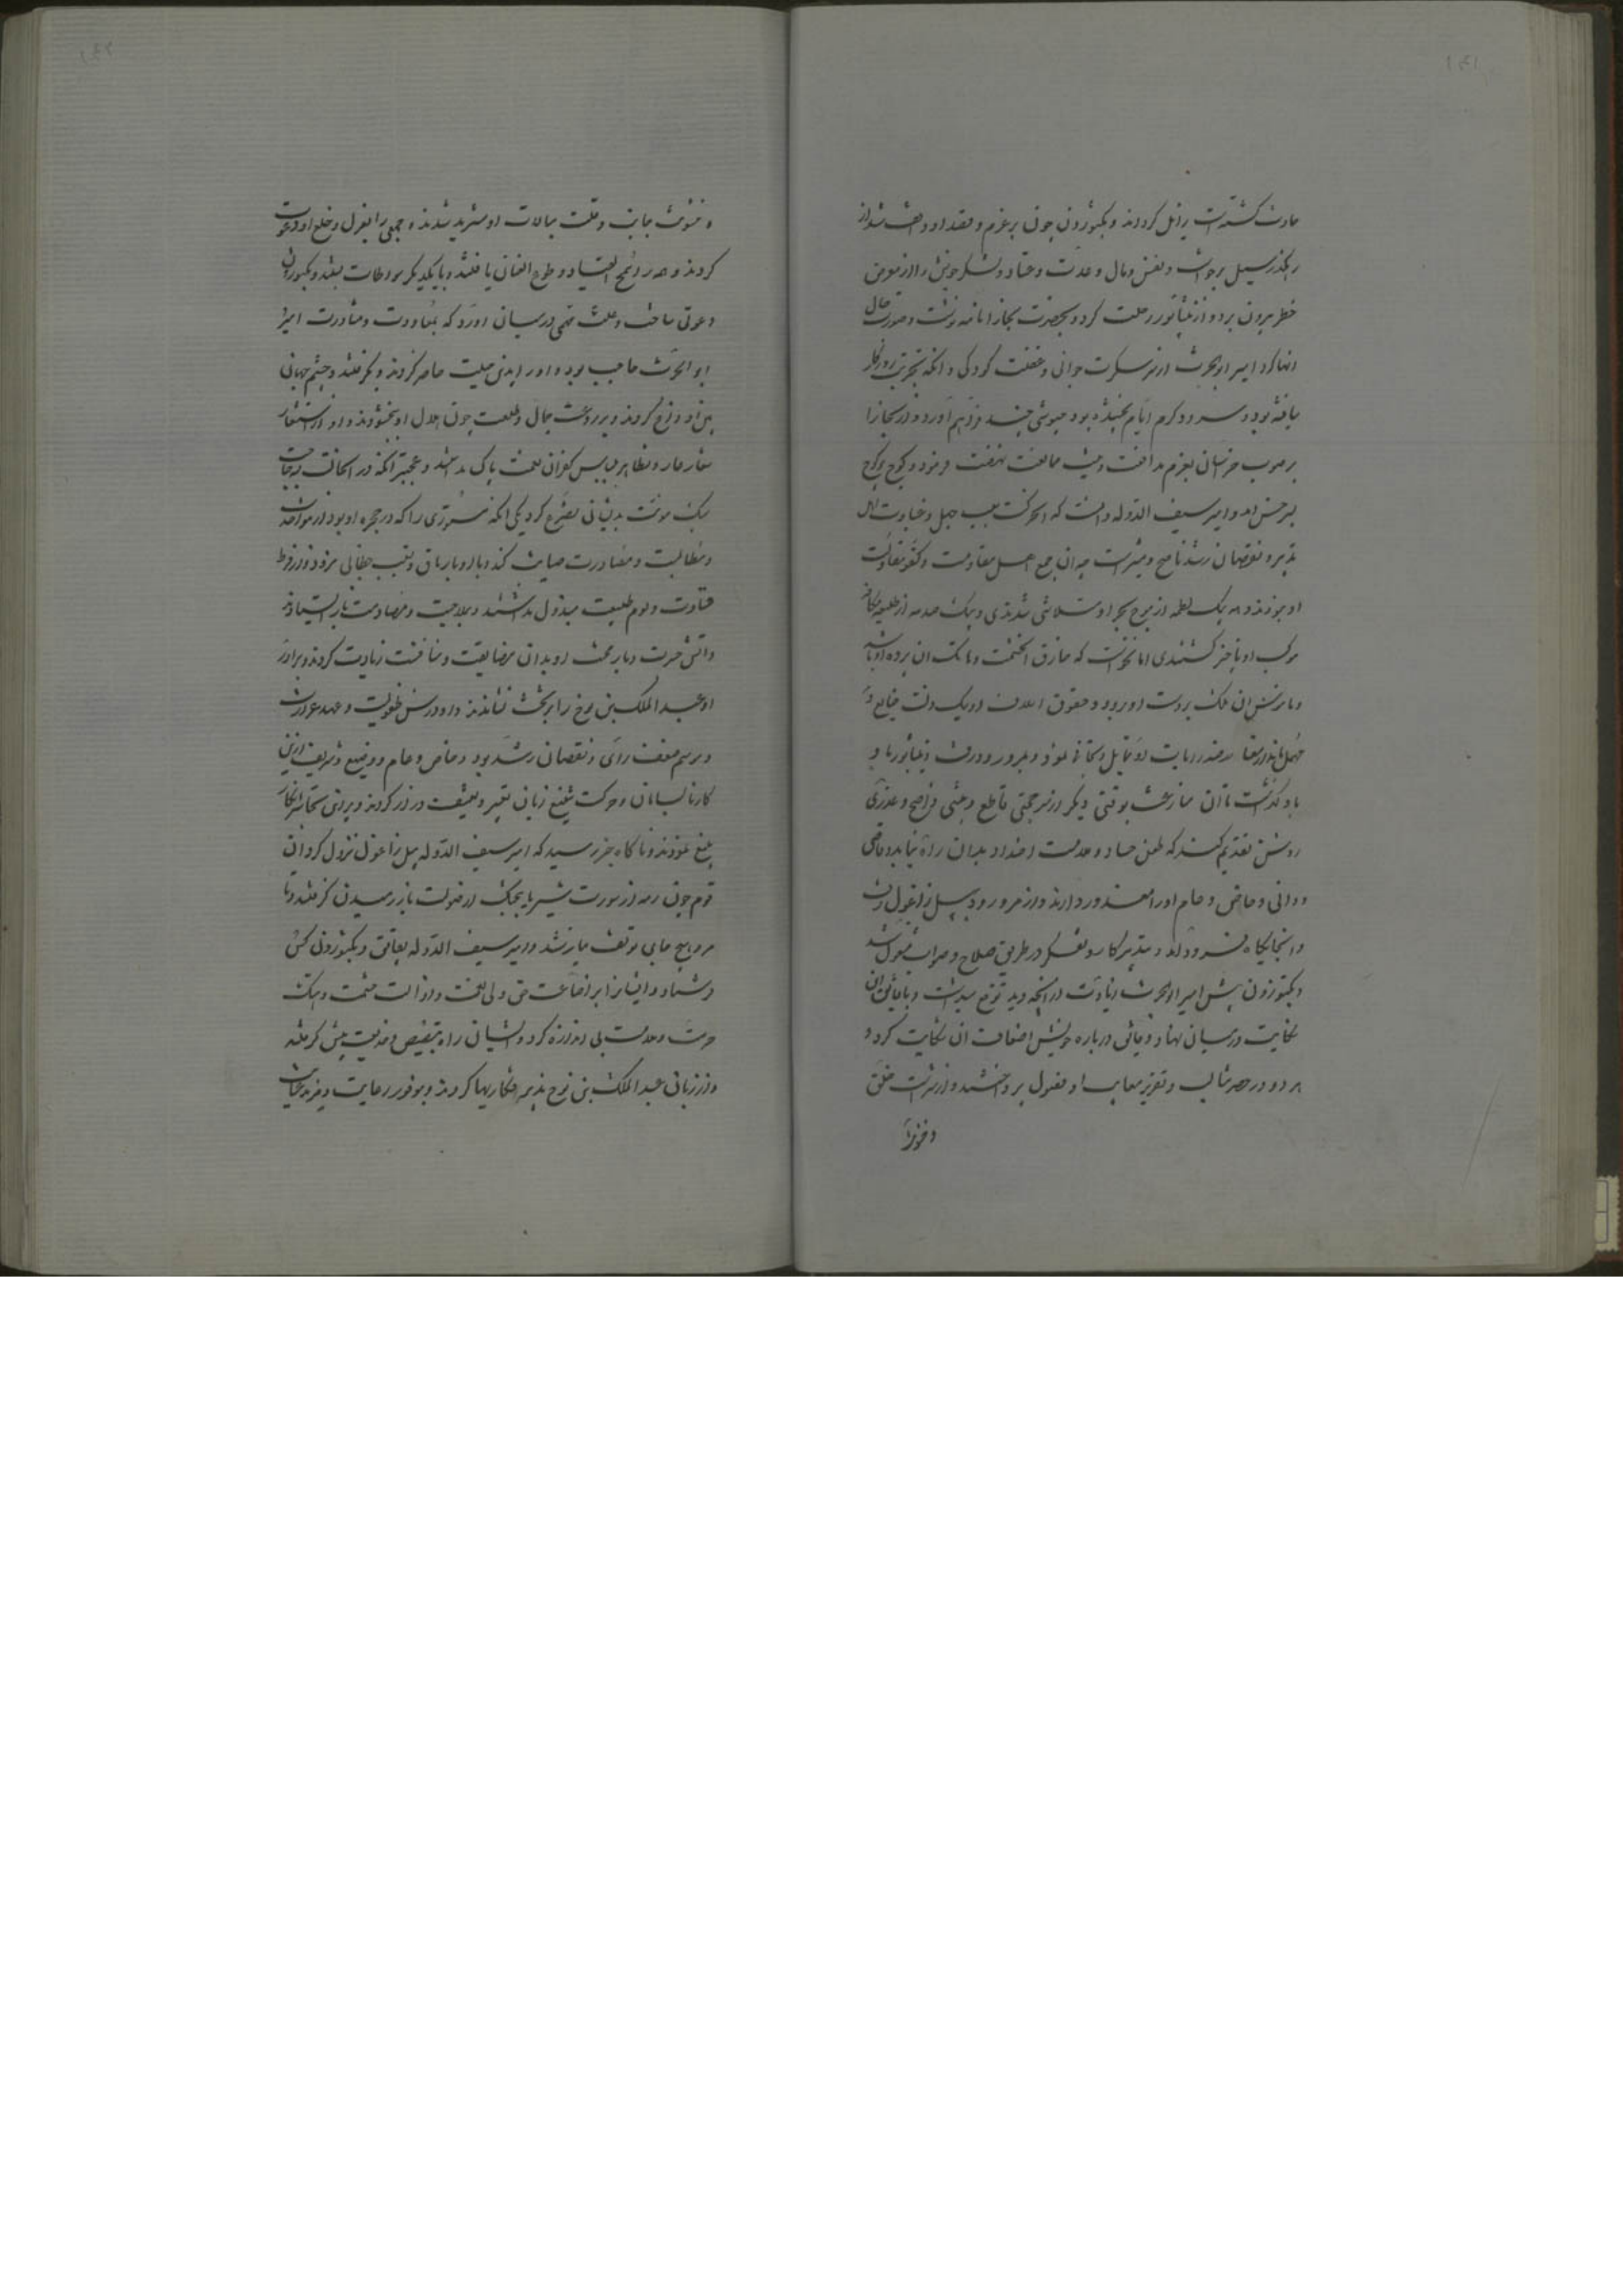 حادث گشته است زایل کرداند و بکتوزون چون بر عزم و قصد او واقف شد از
رهگذر سیل برخاست و نفس و مال و عدت و عتاد و لشکر خویش را از معرض
خطر بیرون برد و از نیشابور رحلت کرد و بحضرت بخارا نامه نوشت و صورت حال
انها کرد امیر ابوالحرث از سر سکرت جوانی و غفلت کودکی و آنکه تجربت روزگار
یافته بود و سرد و گرم ایام بخشیده بود جیوشی چند فراهم آورد و از بخارا
بر صوب خراسان بعزم مدافعت و ممانعت نهضت فرمود و کوچ بر کوچ
بسرخس آمد و امیر سیف الدوله دانست که آن حرکت بسبب جهل و غباوت اهل
تدبیر و نقصان رشد ناصح و مشیرست چه آن جمع اهل مقاومت و کفو مقاوات
او نبودند و به یک لطمه از موج بحر او متلاشی شدندی و بیک صدمه از طلیعه
موکب او ناچیز گشتندی اما نخواست که خارق آن حشمت و هاتک آن پرده او باشد
و ماه آن ملک بر دست او رود و حقوق اسلاف او یک دفعت ضایع و
مهمل ماند از رعایت و نیشابور با او
باو گذاشت تا آن منازعت بوقتی دیگر از سر حجتی قاطع و واضح و عذری
روشن تقدیم کند که طعن حساد و ملامت اضداد بدان راه نیابد و قاصی
و دانی و خاص و عام او را معذور دارند و از مرو رود بپل زاغول رفت
و آنجایگاه فرود آمد و بتدبیر کار و تفکر در طریق صلاح و صواب مشغول شد
و بکتوزون پیش امیر ابوالحرث زیادت از آنچه دید توقع میداشت و با فایق از آن
شکایت در میان نهاد و فایق درباره خویش اضعاف آن شکایت کرد و
هر دو در حصر مثالب و تقریر معایب او فصول پرداختند و از شراست خلق
و خونرا
و خشونت جانب و قلت مبالات او مستزید شدند و جمعی را بعزل و خلع او دعوت
کردند و همه را انقیاد و طوع اذعان یافتند و با یکدیگر مواطات بستند و بکتوزون
دعوتی ساخت و علت مهمی در میان آورد که بمعاودت و مشاورت امیر
ابوالحرث حاجب بود و او را بدین حیلت حاضر کردند و بگرفتند و چشم جهان
بین او داغ کردند و بر روعت جمال و طلعت چون هلال او نبخشودند و از استشعار
شعار عار و تظاهر بلباس کفران نعمت باک نداشتند و عجبتر آنکه در آن حالت بحاجت
سبک مونت بدیشان تضرع کرد یکی آنکه مستوری را که در حجره او بود از مواخذت
و مطالبت و مصادرت صیانت کنند
قساوت و لوم طبیعت مبذول نداشتند
و آتش حسرت و بار محنت او بدان مضایقت و مناقشت زیادت کردند و برادر
او عبد الملک بن نوح را بر تخت نشاندند و او در سن طفولیت و عهد
و برسم ضعف رای و نقصان رشد بود و خاص و عام و وضیع و شریف ازین
کار نابسامان و حرکت شنیع زبان تعییر و تعنیف دراز کردند و برین سخت انکار
بلیغ نمودند و ناگاه خبر رسید که امیر سیف الدوله بپل زاغول نزول کرد آن
قوم چون رمه از سورت شیر یا کبک از صولت باز رمیدن گرفتند و تا
مرو بهیچ جای توقف نیارستند و امیر سیف الدوله بفایق و بکتوزون کس
فرستاد و ایشانرا بر اضاعت حق ولی نعمت و ازالت حشمت و هتک
حرمت ملامت بی اندازه کرد و ایشان راه بتضیع و مداهنت پیش گرفتند
و از زبان عبد الملک بن نوح پذیرفتکاریها کردند و بوفور رعایت و مزید عنایت